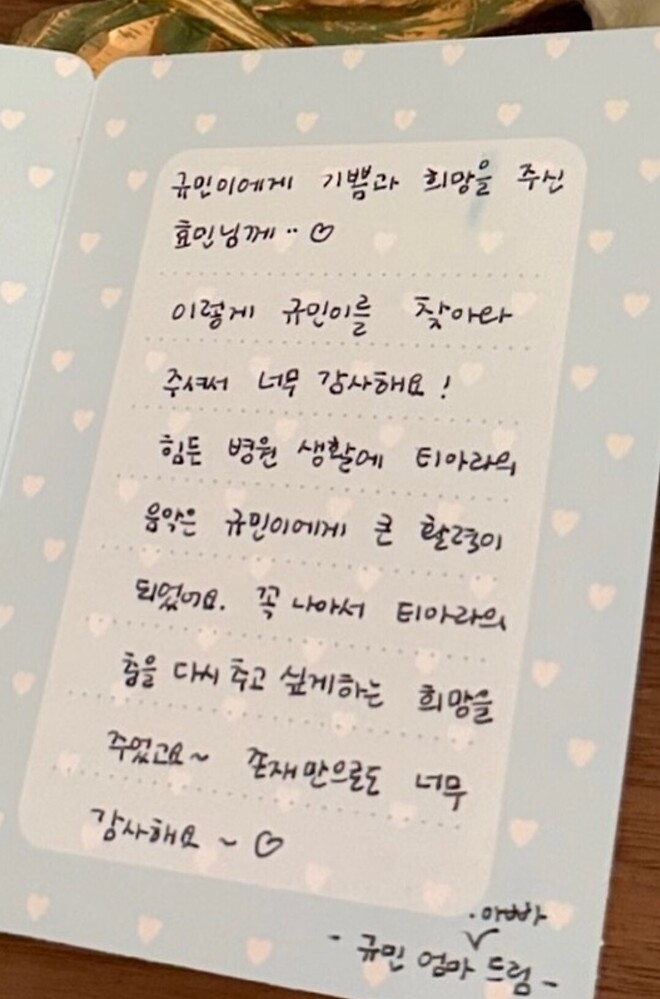 규민이에게 기쁨과 희망을 주신
효민님께.. ♡
이렇게 규민이를 찾아와
주셔서 너무 감사해요!
힘든 병원 생활에 티아라의
음악은 규민이에게 큰 활력이
되었어요. 꼭 나아서 티아라의
춤을 다시 추고 싶게하는 희망을
주었고요~ 존재만으로도 너무
감사해요 ~ ♡
·아빠가
- 규민 엄마 드림 -